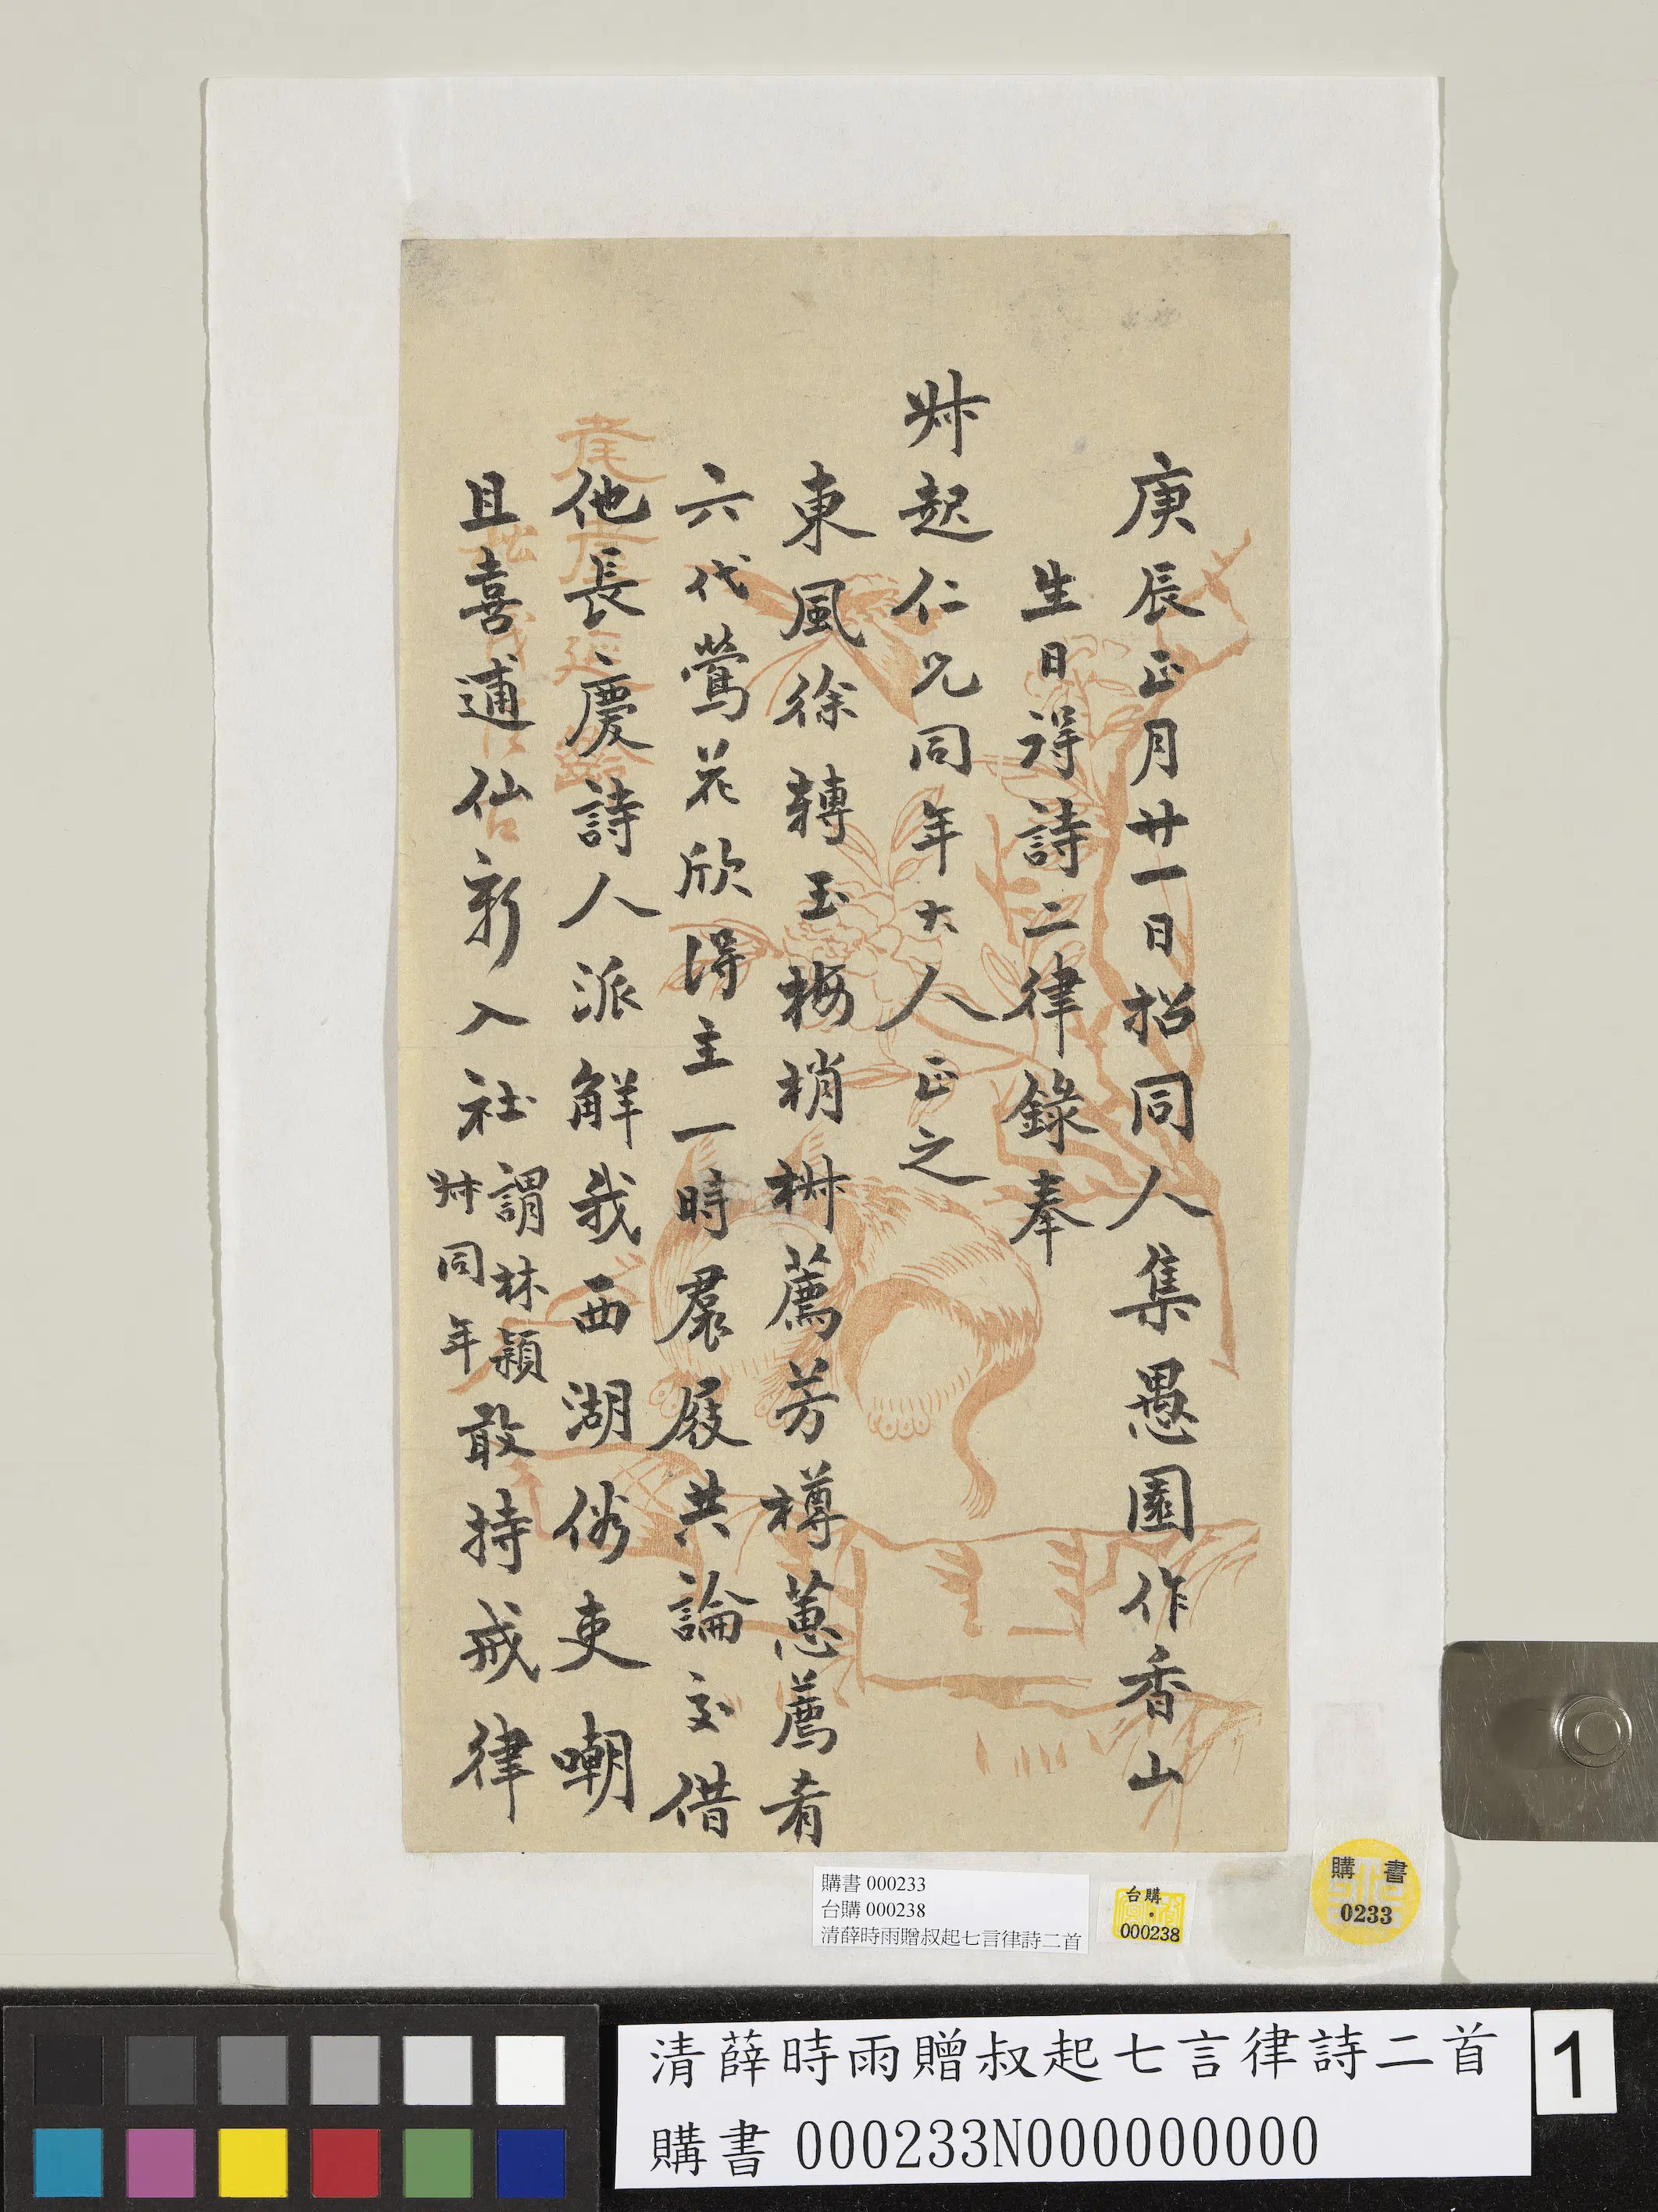 庚辰正月廿一日招同人集愚園作香山
生日得詩二律錄奉
尗起仁兄同年大人正之
東風徐轉玉梅梢椒薦芳樽蕙薦肴
六代鶯花欣得主一時裠屐共論交借
他長慶詩人派觧我西湖俗吏嘲
且喜逋仙新入社謂林穎
尗同年敢持戒律
購書 000233
台購 000238
清薛時雨贈叔起七言律詩二首
台購
000238
購書
0233
清薛時雨贈叔起七言律詩二首
購書 000233N000000000
1